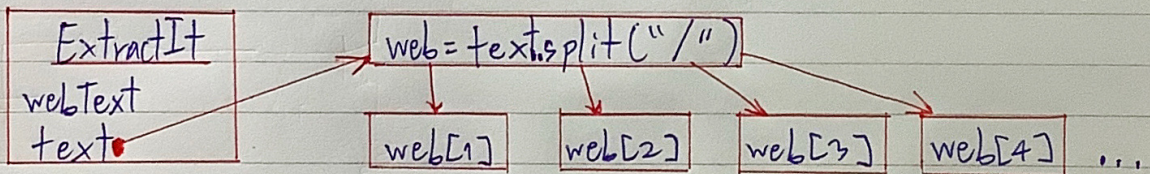 ExtractIt
webText
text
web = text.split("/")
web[1] web[2] web[3] web[4] ...